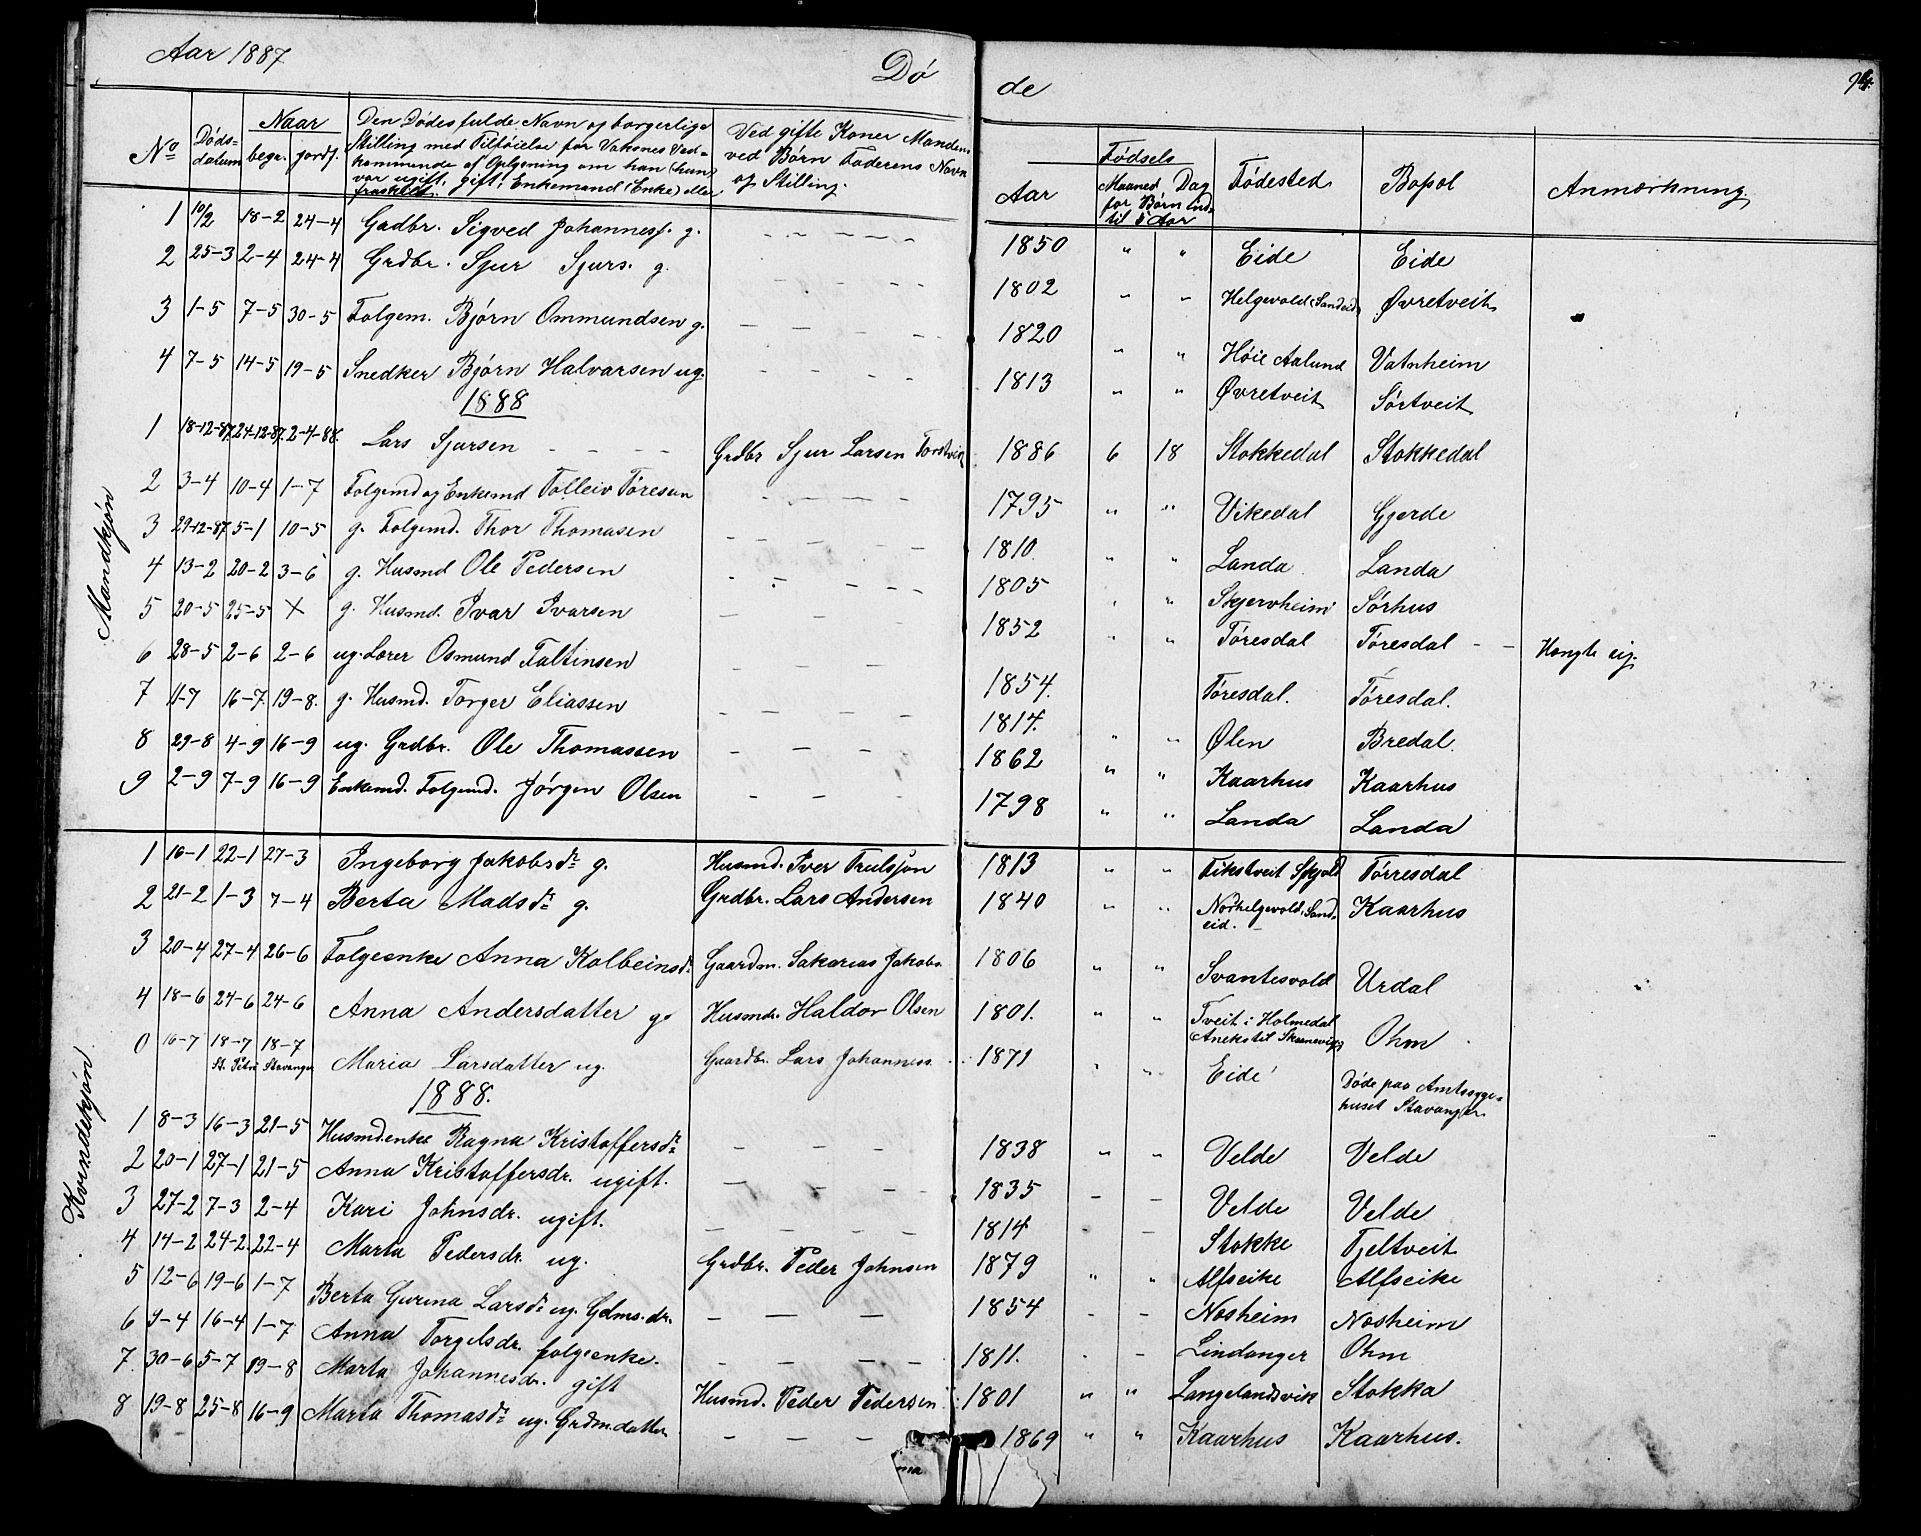 Aar 1887
Dö
de
94.
No
Döds-
datum
Naar
begr.
jordf.
Den Dödes fulde Navn og borgerlige
Stilling med Tilföielse for Voksnes Ved-
kommende af Oplysning om han (hun)
var ugift, gift, Enkemand (Enke) eller
fraskilt.
Ved gifte Koner Mandens
ved Börn Faderens Navn
og Stilling.
Aar
Födsels
Maaned Dag
for Börn ind-
til 5 Aar
Födested
Bopæl
Anmærkning
1 10/2 18-2 24-4 Gadbr. Sigved Johannesf. g. 1850 " " Eide Eide
2 25-3 2-4 24-4 Grdbr. Sjur Sjurs. g. 1802 " " Helgevold (Sandeid) Øvretveit
3 1-5 7-5 30-5 Folgem. Björn Ommundsen g. 1820 " " Höie Aalund Vatnheim
4 7-5 14-5 19-5 Snedker Björn Halvarsen ug. 1813 " " Øvretveit Sörtveit
1888
Mandkjön
1 18-12-87 24-12-87 2-4-88. Lars Sjursen Grdbr Sjur Larsen 1886 6 18 Stokkedal Stokkedal
2 3-4 10-4 1-7 Folgemd og Enkemd Tolleiv Töresen 1795 " " Vikedal Gjerde
3 29-12-87 5-1 10-5 g. Folgemd. Thor Thomasen 1810. " " Landa Landa
4 13-2 20-2 3-6 g. Husmd Ole Pedersen 1805 " " Skjervheim Sörhus
5 20-5 25-5 X g. Husmd. Ivar Ivarsen 1852 " " Töresdal Töresdal - - Hængte sig.
6 28-5 2-6 2-6 ug. Lærer Osmund Faltinsen 1854. Töresdal. Töresdal.
7 11-7 16-7 19-8. g. Husmd. Torger Eliassen 1814. " " Ølen Bredal.
8 29-8 4-9 16-9 ug. Grdbr. Ole Thomassen 1862 " " Kaarhus Kaarhus
9 2-9 7-9 16-9 Enkemd. Folgemd. Jörgen Olsen 1798 " " Landa Landa
Kvindekjön
1 16-1 22-1 27-3 Ingeborg Jakobsdr g. Husmd. Iver Trulsson 1813 " " Tikstveit Skjold Törresdal
2 21-2 1-3 7-4 Berta Madsdr g. Grdbr. Lars Andersen 1840 " " Norhelgevold, Sand-
eid. Kaarhus
3 20-4 27-4 26-6 Folgeenke Anna Kolbeinsdr Gaardm. Sakarias Jakobs. 1806 " " Svantesvold Urdal
4 18-6 24-6 24-6 Anna Andersdatter g. Husmd. Haldor Olsen 1801. " " Tveit i Holmedal
(Aneks til Skaanevig) Ohm
0 16-7 18-7 18-7 Maria Larsdatter ug. Gaardbr. Lars Johanness. 1871 " " Eide Döde paa Amtssyge-
St. Petri Stavanger huset Stavanger.
1888.
1 8-3 16-3 21-5 Husmdenke Ragna Kristoffersdr 1838 " " Velde Velde
2 20-1 27-1 21-5 Anna Kristoffersdr. ugift. 1835 - - Velde Velde
3 27-2 7-3 2-4 Kari Johnsdr. ugift. 1814 - Stokke Fjeltveit
4 14-2 24-2. 22-4 Marta Pedersdr. ug. Grdbr. Peder Johnsen 1879 " " Alfseike Alfseike
5 12-6 19-6 1-7 Berta Gurina Larsdr ug. Gdms. dr. 1854 - - Nosheim Nosheim
6 9-4 16-4 1-7 Anna Torgelsdr. folgeenke. 1811. - - Lindanger Ohm
7. 30-6 5-7 19-8 Marta Johannesdr. gift Husmd. Peder Pedersen 1801 " " Langelandsvik Stokka
8 19-8 25-8 16-9 Marta Thomasdr ug. Grdm.datter 1869 " " Kaarhus Kaarhus.